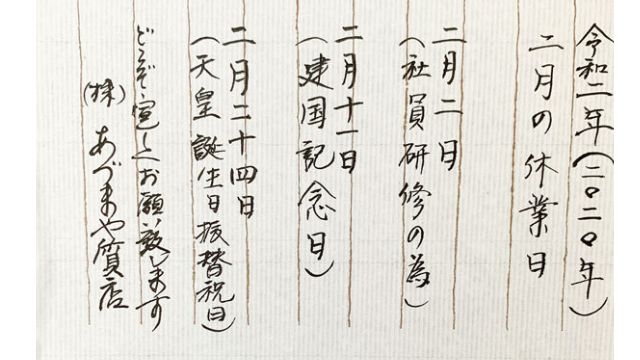 令和二年(二〇二〇年)
二月の休業日
二月二日
(社員研修の為)
二月十一日
(建国記念日)
二月二十四日
(天皇誕生日振替祝日)
どうぞ宜しくお願い致します
(株)あづまや質店